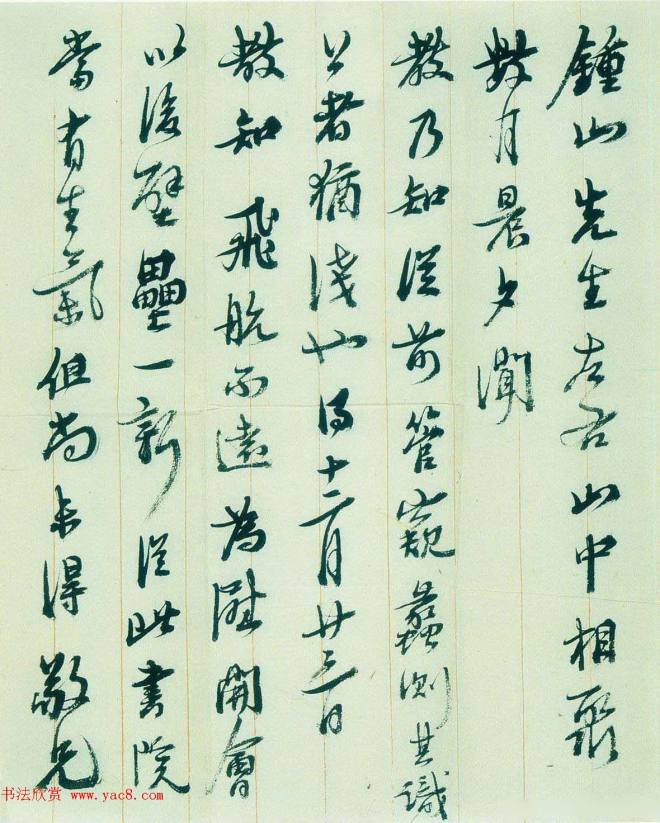 鍾山先生左右山中相聚
數月晨夕聞
教乃知從前管窺蠡測其識
公者猶淺也得十二月廿三日
教知 飛航不遠為開會
以後壁壘一新從此書院
當有生氣但尚未得敬兄
书法欣赏 www.yac8.com